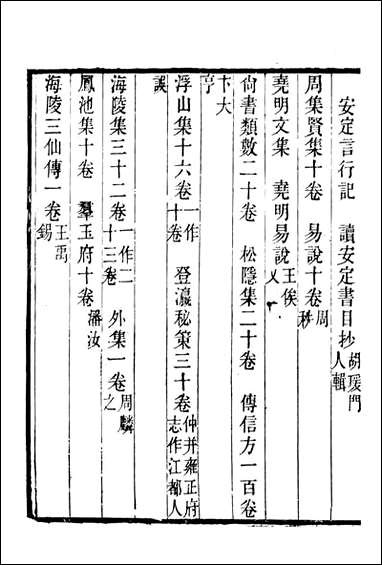 安定言行記　讀安定書目抄胡瑗門人輯
周集賢集十卷　易說十卷周秩
堯明文集　堯明易說王俟乂
尙書類數二十卷　松隱集二十卷　傳信方一百卷
卞大亨
浮山集十六卷一作十卷　登瀛秘策三十卷仲并雍正府志作江都人
誤
海陵集三十二卷一作二十三卷　外集一卷周麟之
鳳池集十卷　羣玉府十卷潘汝
海陵三仙傳一卷王禹錫